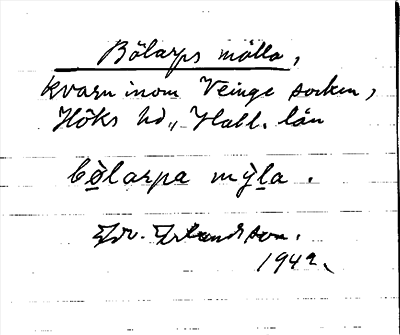 Bölarps mölla,
kvarn inom Veinge socken,
Höks hd., Hall. län
bö̀larpa mỳla.
Edv. Erlandsson.
1942.